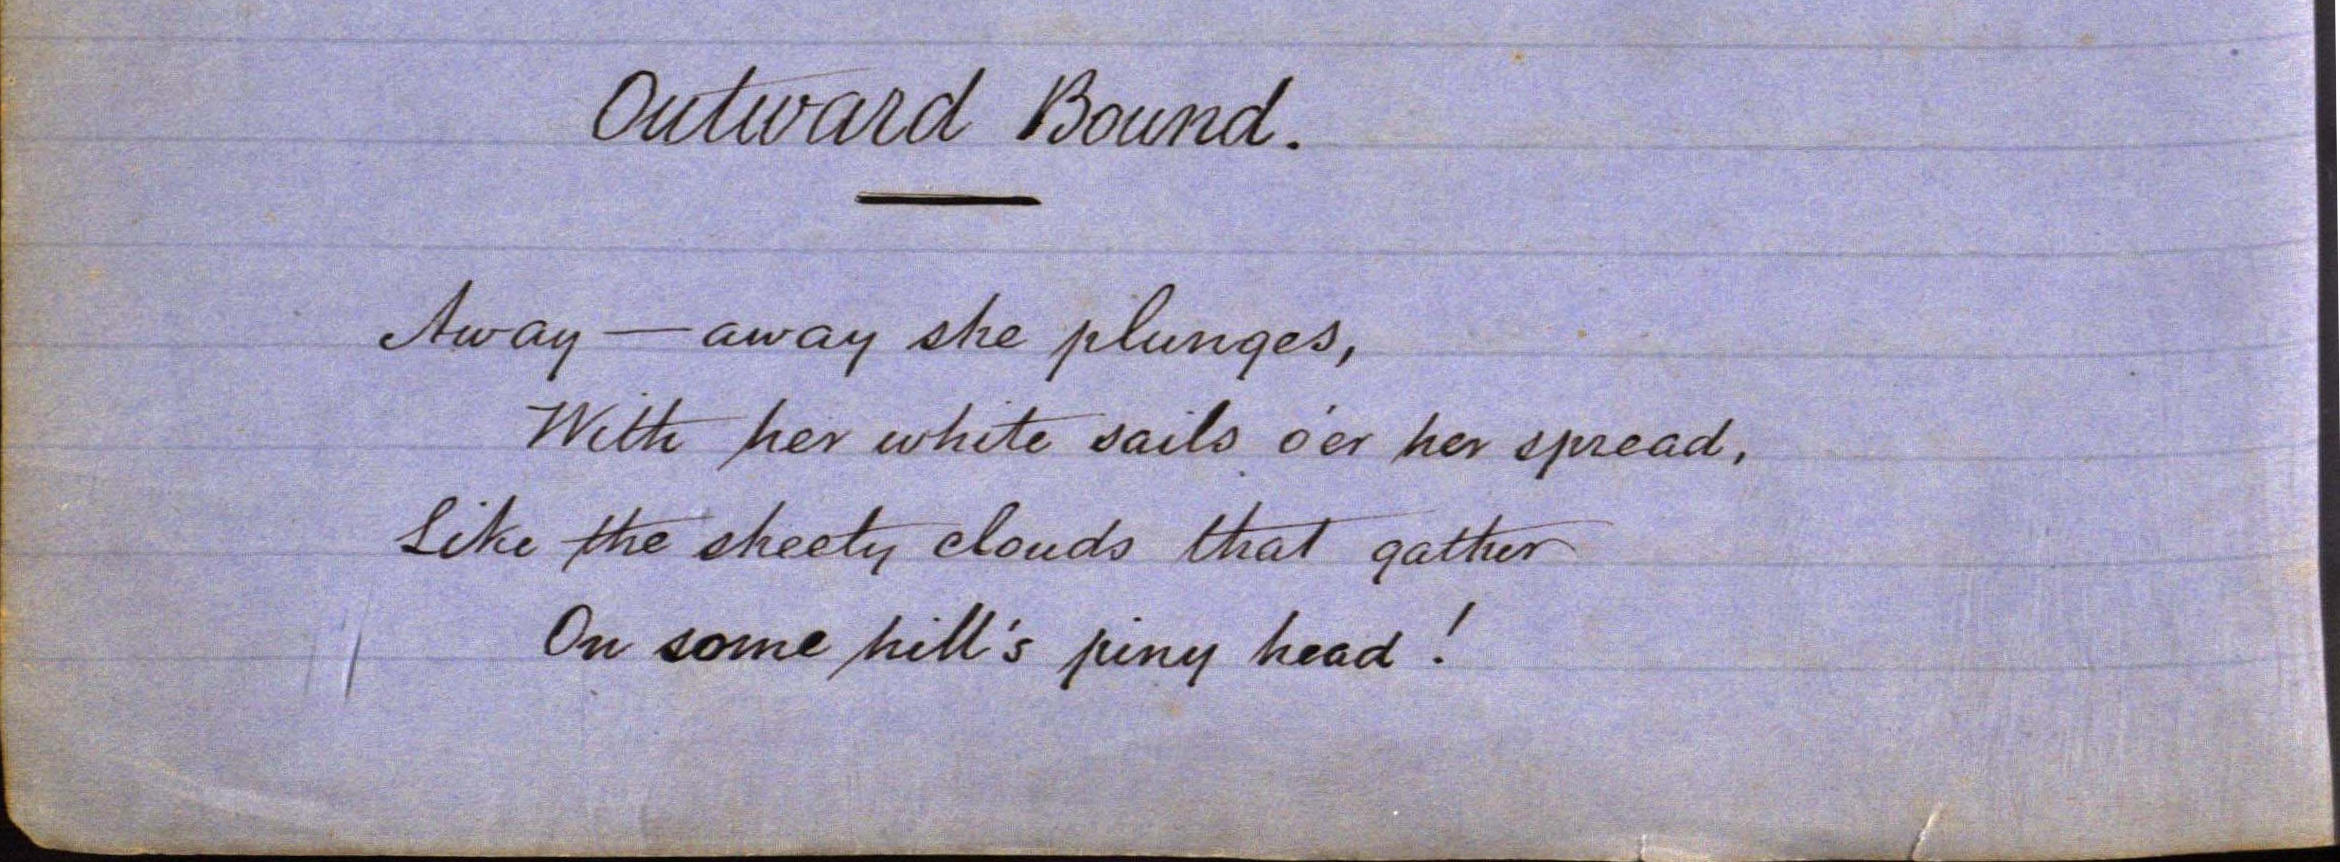 Outward Bound.
Away — away she plunges,
With her white sails o'er her spread,
Like the sheety clouds that gather
On some hill's piny head!